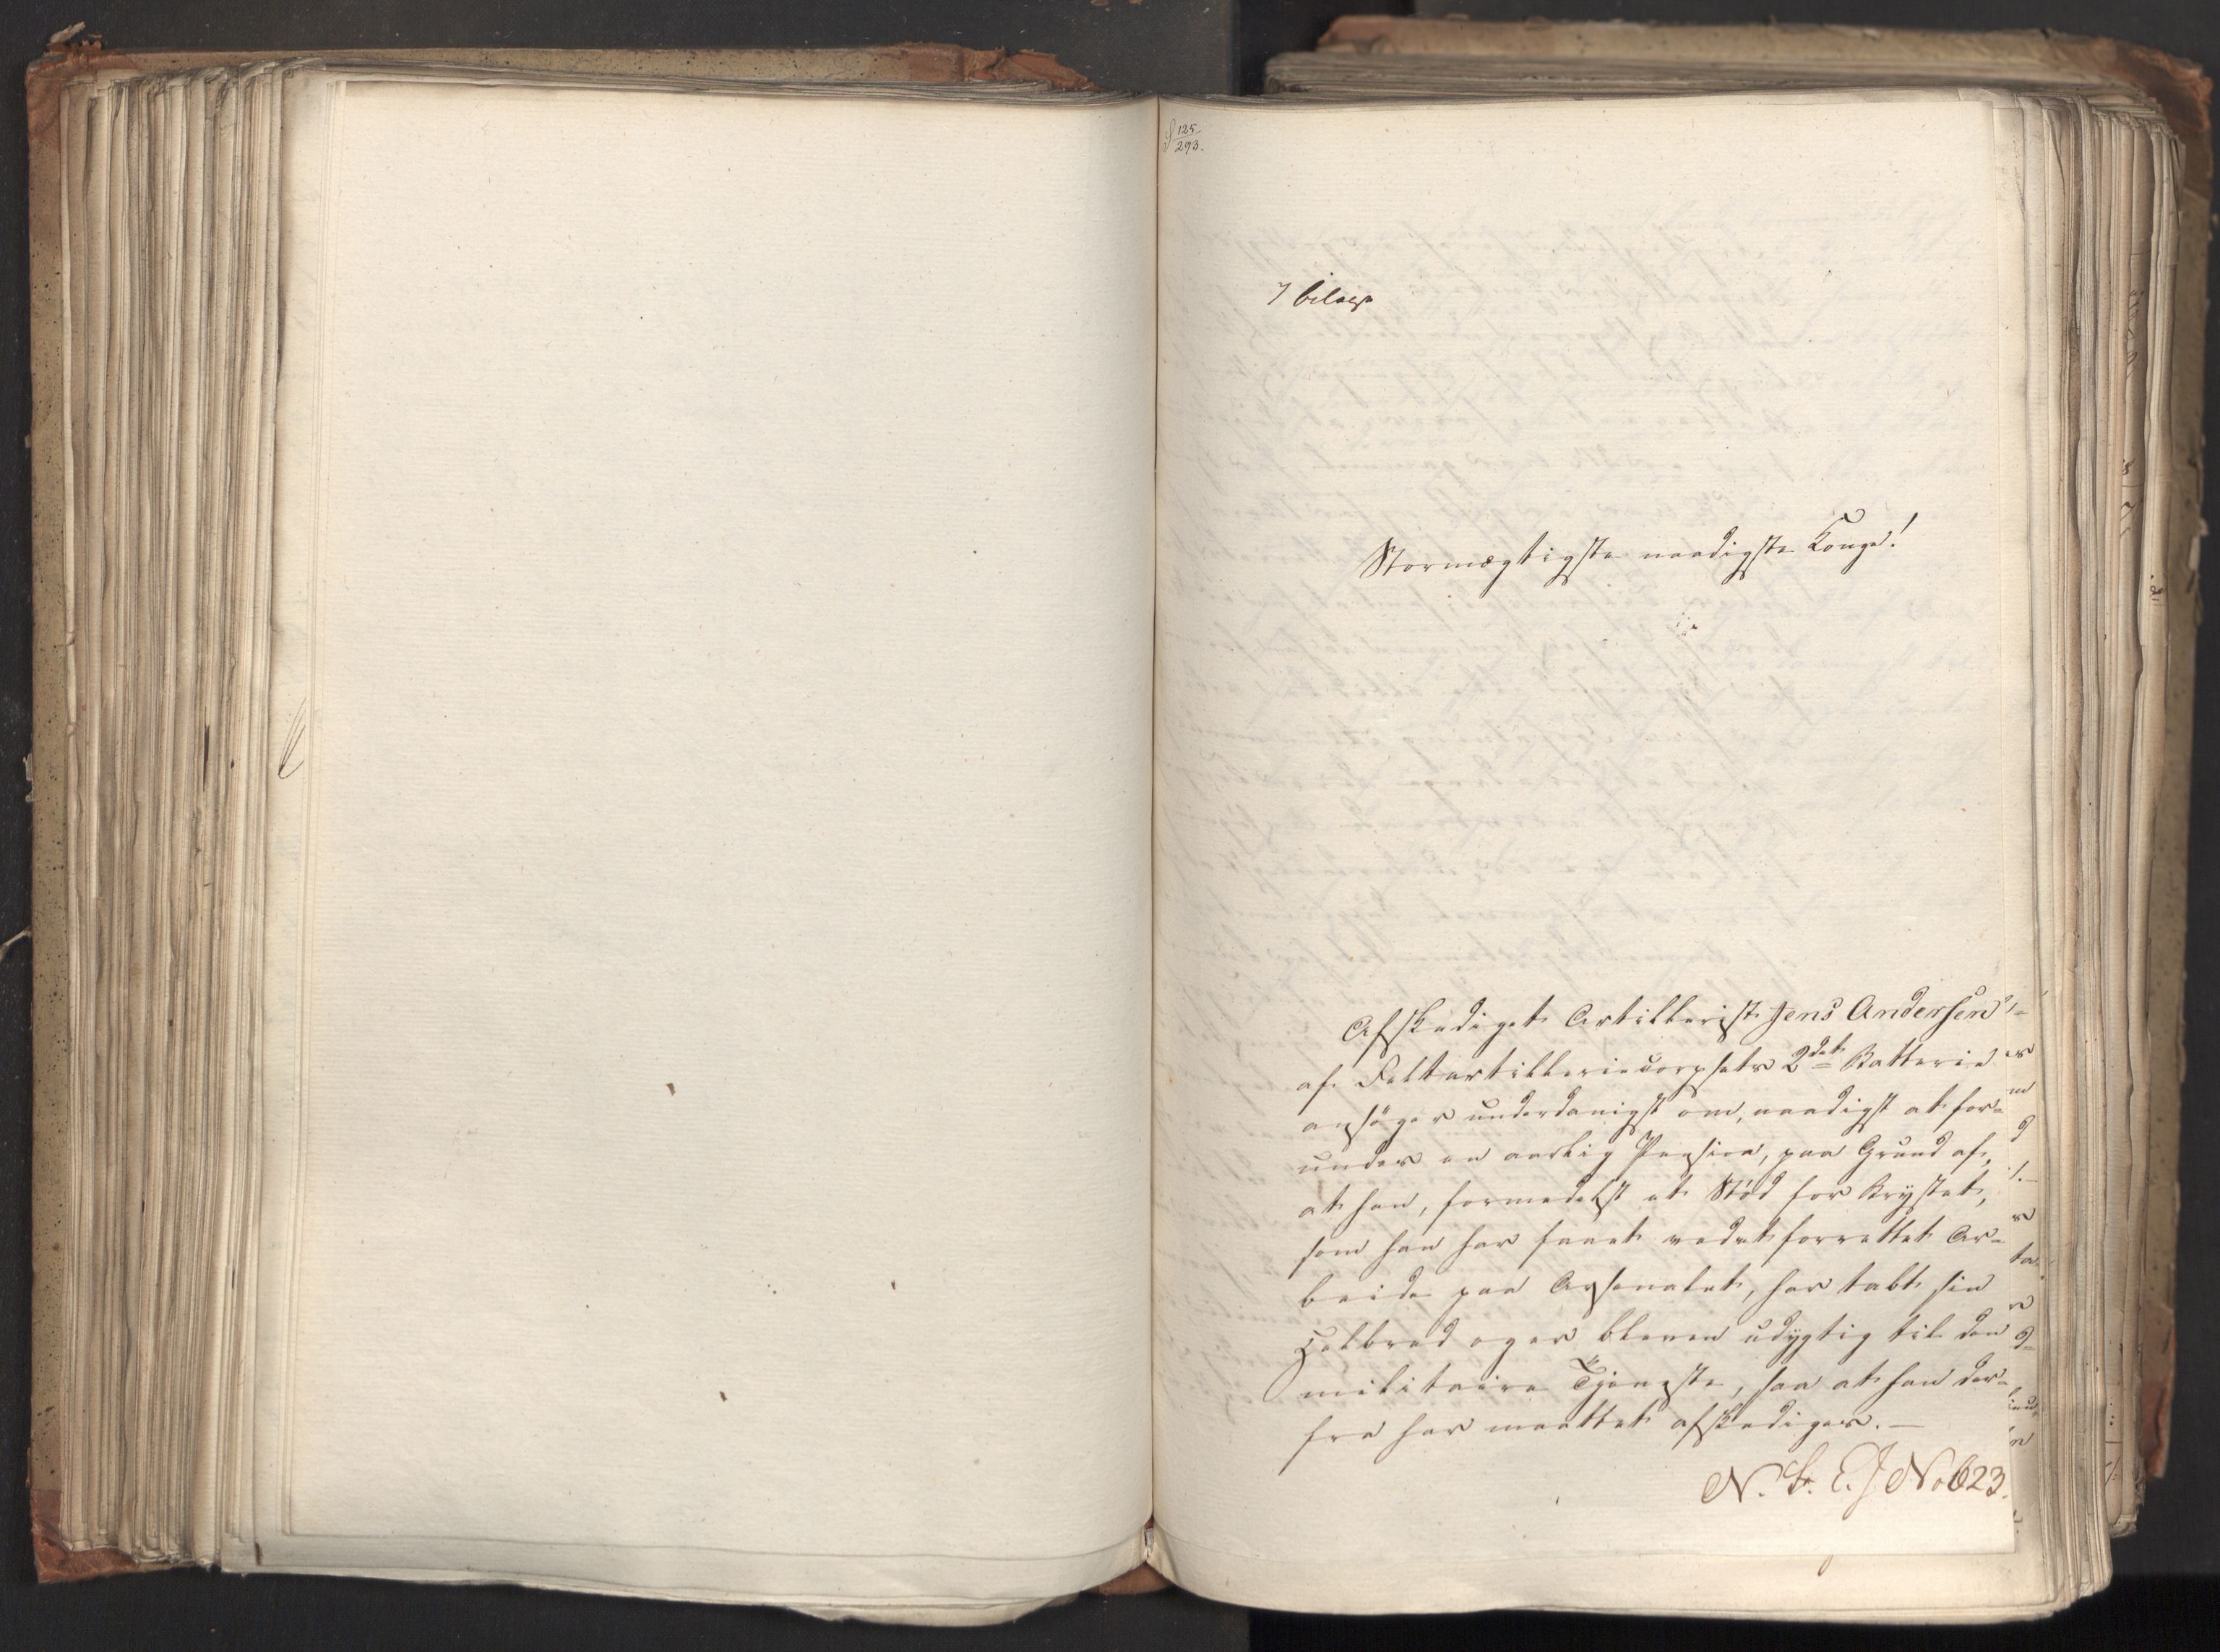 S 125
293.
7 bilag
Stormægtigste naadigste Konge!
Afskediget Artillerist Jens Andersen
af Feltartilleriecorpsets 2det Batterie
ansøger underdanigst om, naadigst at for=
undes en aarlig Pension, paa Grund af,
at han, formedelst et Stød for Brystet,
som han har faaet ved et forrettet Ar=
beide paa Arsenalet, har tabt sin
Helbred og er bleven udygtig til den
militaire Tjeneste, saa at han der=
fra har maattet afskediges.—
N. No 623.